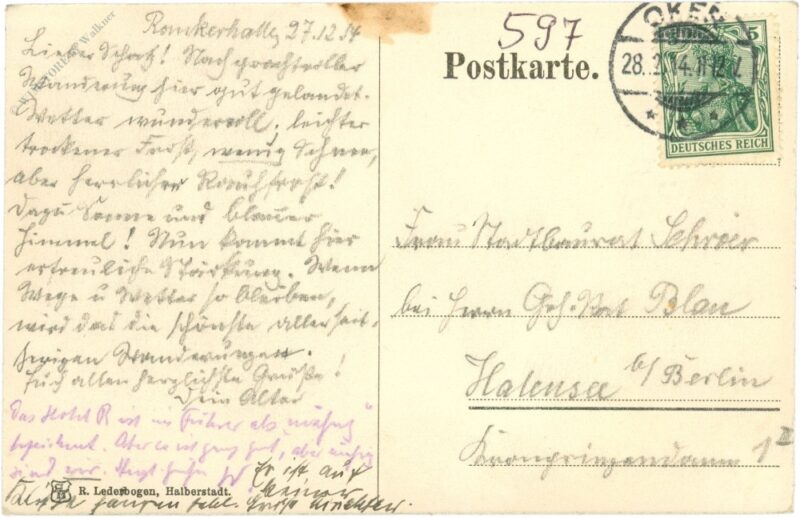 Romkerhalle, 27.12.14
Lieber Schatz! Nach prachtvoller
Wanderung hier gut gelandet.
Wetter wundervoll, leichter
trockener Frost, wenig Schnee,
aber herrlicher Rauhfrost!
Dazu Sonne und blauer
Himmel! Nun kommt hier
erfreuliche Stärkung. Wenn
Wege u Wetter so bleiben,
wird das die schönste aller seit-
herigen Wanderungen.
Euch allen herzlichste Grüße!
Dein Alter
Das Hotel R ist im Führer als
bezeichnet. Aber es ist ganz gut, aber
sind wir.
Es ist auf
R. Lederbogen, Halberstadt.
597
Postkarte.
OKER
28.12.14.11-12
5
DEUTSCHES REICH
Frau Stadtbaurat Schröer
bei Herrn Geh. Rat Blau
Halensee b/Berlin
Kronprinzendamm 1